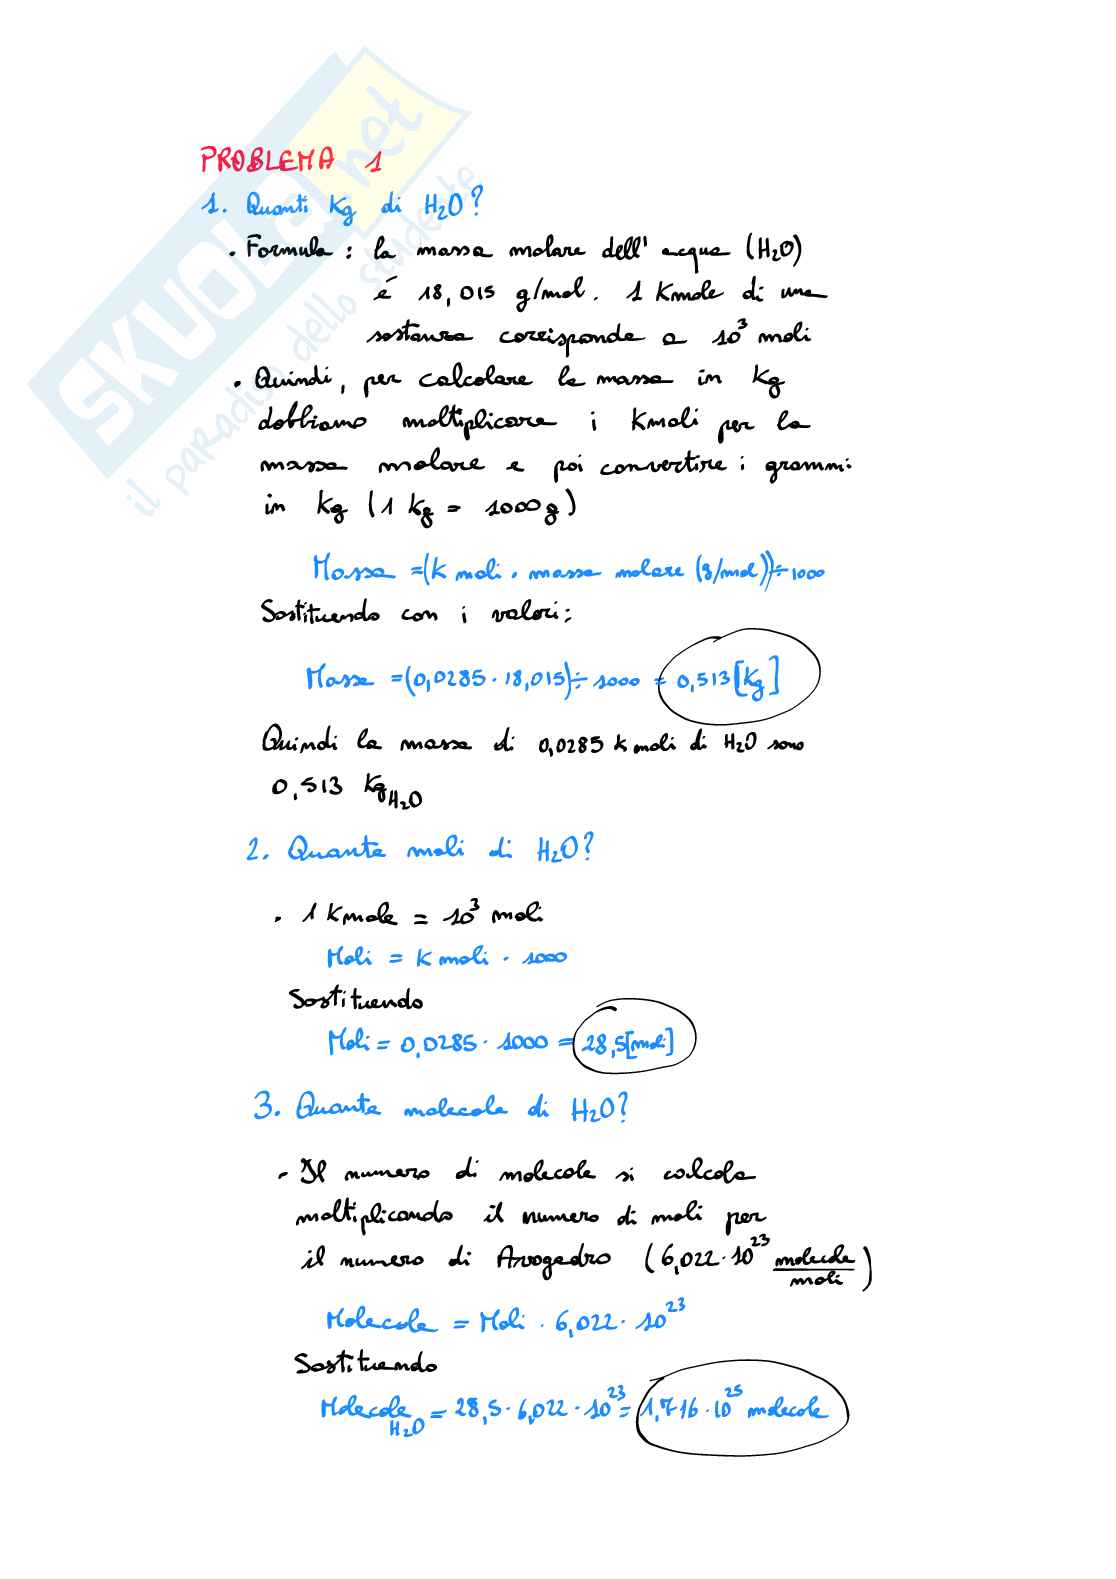 SKUOLA.net
il paradiso dello studente
PROBLEMA 1
1. Quanti Kg di H₂O?
• Formula: la massa molare dell'acqua (H₂O)
é 18,015 g/mol. 1 Kmole di una
sostanza corrisponde a 10³ moli
• Quindi, per calcolare la massa in Kg
dobbiamo moltiplicare i Kmoli per la
massa molare e poi convertire i grammi
in Kg (1 Kg = 1000g)
Massa =(K moli • massa molare (g/mol))÷1000
Sostituendo con i valori:
Massa =(0,0285 • 18,015)÷ 1000 = 0,513 [Kg]
Quindi la massa di 0,0285 k moli di H₂O sono
0,513 Kg H₂O
2. Quante moli di H₂O?
• 1 Kmole = 10³ moli
Moli = K moli • 1000
Sostituendo
Moli = 0,0285 • 1000 = 28,5[moli]
3. Quante molecole di H₂O?
• Il numero di molecole si calcola
moltiplicando il numero di moli per
il numero di Avogadro (6,022 • 10²³ molecole/moli)
Molecole = Moli • 6,022 • 10²³
Sostituendo
Molecole H₂O = 28,5 • 6,022 • 10²³ = 1,716 • 10²⁵ molecole